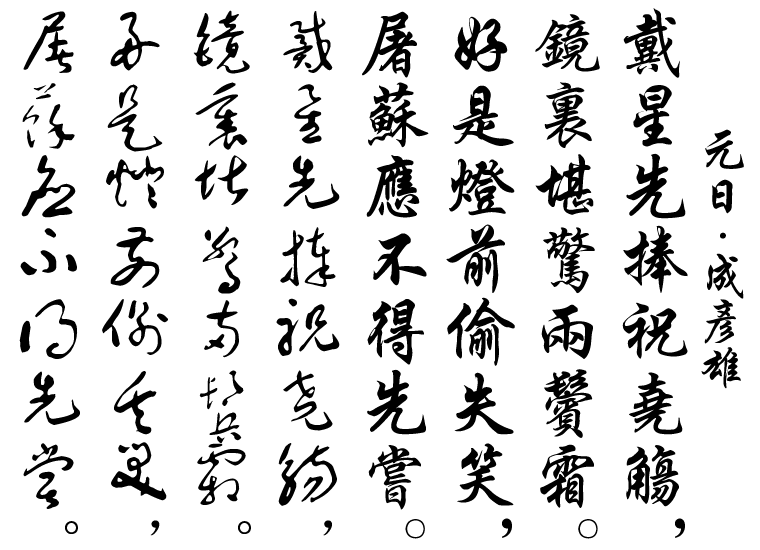 元日·成彥雄
戴星先捧祝堯觴，
鏡裏堪驚兩鬢霜。
好是燈前偷失笑，
屠蘇應不得先嘗。
戴星先捧祝堯觴，
鏡裏堪驚兩鬢霜。
好是燈前偷失笑，
屠蘇應不得先嘗。